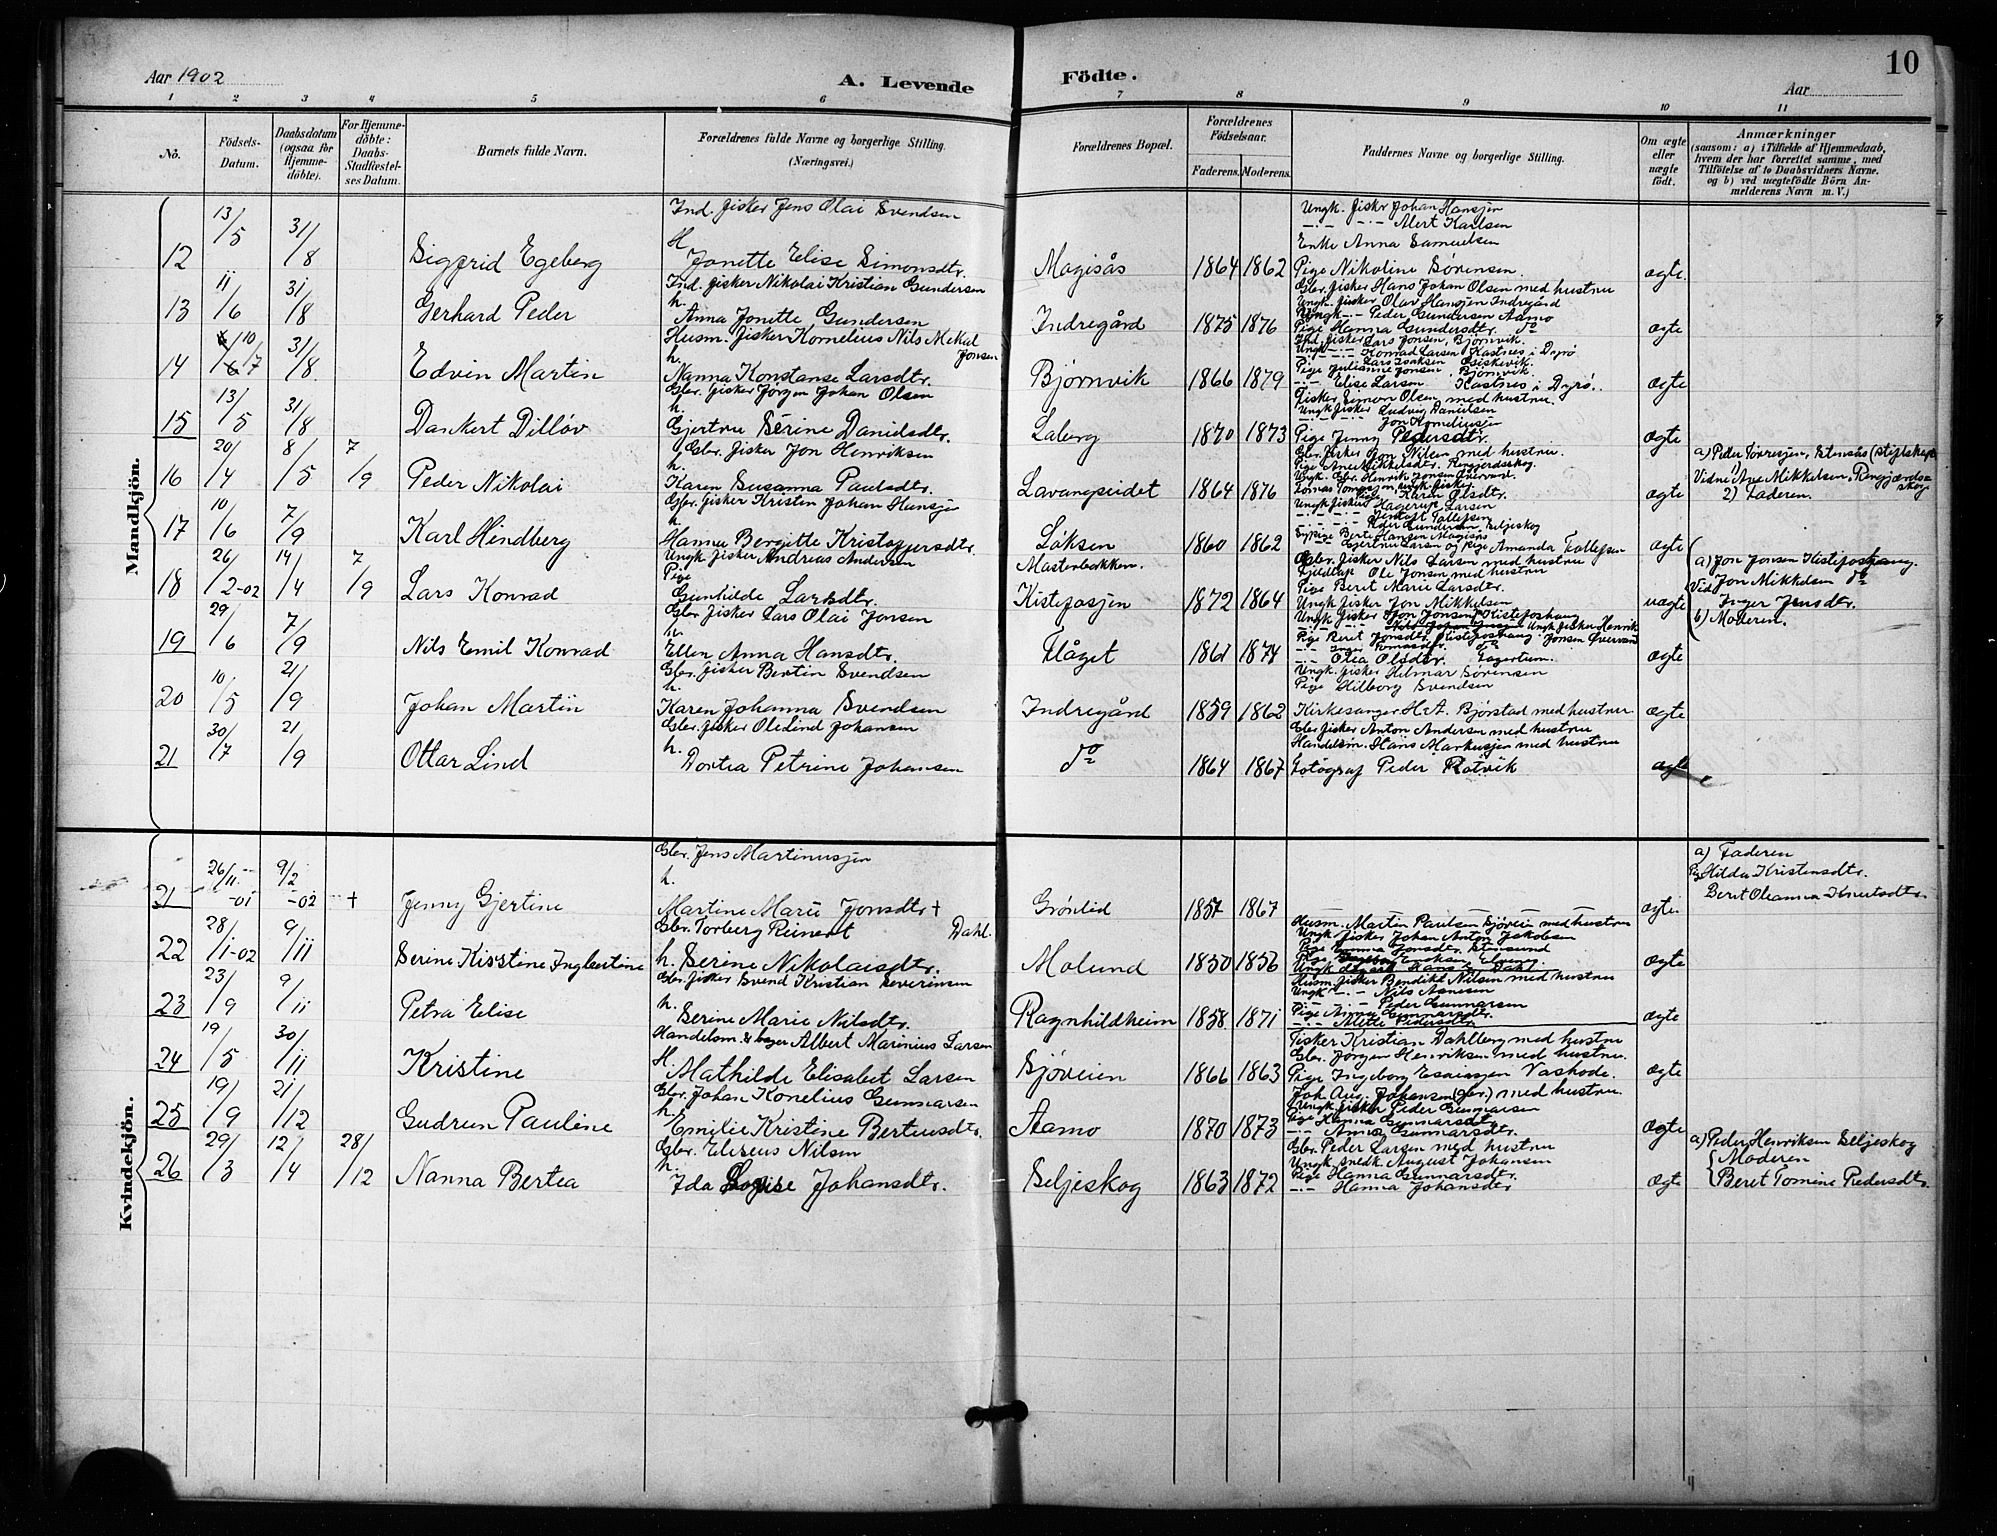 Aar 1902
A. Levende
Födte.
Aar
10
1 2 3 4 5 6 7 8 9 10 11
No.
Födsels-Datum.
Daabsdatum (ogsaa for Hjemme-döbte).
For Hjemme-döbte: Daabs-Stadfæstel-ses Datum.
Barnets fulde Navn.
Forældrenes fulde Navne og borgerlige Stilling. (Næringsvei.)
Forældrenes Bopæl.
Forældrenes Födselsaar.
Faderens. Moderens.
Faddernes Navne og borgerlige Stilling.
Om ægte eller uægte födt.
Anmærkninger
(saasom: a) i Tilfælde af Hjemmedaab, hvem der har forrettet samme, med Tilföielse af to Daabsvidners Navne. og b) ved uægtefödte Börn An-melderens Navn m. V.)
Mandkjön.
12 13/5 31/8 Sigfrid Egeberg
Ind. fisker Jens Olai Svendsen
H Jonette Elise Simonsdtr.
Magisås 1864 1862
Ungk. fiskr Johan Hansen
-·- Alert Karlsen
Enke Anna Samuelsen
Pige Nikoline Sørensen.
ægte.
13 11/6 31/8 Gerhard Peder
Ind. fisker Nikolai Kristian Gundersen
h. Anna Jonette Gundersen
Indregård 1875 1876
Gbr. fisker Hans Johan Olsen med hustru
Ungk. fisker Olar Hansen Indregård
Ungk -·- Peder Gundersen Aamo
Pige Hanna Gundersdtr. do
ægte
14 10/7 31/8 Edvin Martin
Husm. fisker Kornelius Nils Mekal Jonsen
h. Nanna Konstanse Larsdtr.
Bjørnvik 1866 1879
Ind. fisker Lars Jonsen, Bjørnvik.
Ungk -·- Konrad Larsen Kastnes i Dyrø
-·- Lars Isaksen
Pige Julianne Jonsen, Bjørnvik.
-·- Elise Larsen Kastnes i Dyrø.
ægte
15 13/5 31/8 Dankert Dilløv
Gbr. fisker Jørgen Johan Olsen
h. Gjertru Serine Danielsdtr.
Laberg 1870 1873
Fisker Simon Olsen med hustru.
Ungk fisker Ludvig Danielsen
-·- Jon Korneliusen
Pige Jenny Pedersdtr.
ægte
16 20/4 8/5 7/9 Peder Nikolai
Gbr. fisker Jon Henriksen
h. Karen Susanna Paulsdtr.
Lavangseidet 1864 1876
Gbr. fisker Jon Nilsen med hustru.
Pige Ane Mikkelsdtr. Rengjerdsskog.
Ungk. Gbr. Henrik Jonsen Øvervand.
Pige Karen Olsdtr.
ægte
a) Peder Torresen, Stensås (stiftskap
Vidne 1) Ane Mikkelsen, Rengjærds=skog
2) Faderen.
17 10/6 7/9 Karl Hindberg
Gbr. fisker Kristin Johan Hansen
h. Hanna Bergitte Kristoffersdtr.
Løksen 1860 1862
Ungk fisker Hagerup Larsen
-·- Peder Gundersen Seljeskog
Pige Berte Hansen Magisås
Gjertru Larsen og pige Amanda Tollefsen
ægte
18 26/2-02 14/4 7/9 Lars Konrad
Ungk. fisker Andreas Andersen
Pige Gunhilde Larsdtr.
Masterbakken.
Kistefosjen 1872 1864
Gbr. fisker Nils Larsen med hustru
Fjeldlap Ole Jonsen med hustru
Pige Beret Marie Larsdtr.
Ungk fisker Jon Mikkelsen
uægte
a) Jon Jonsen Kistefoshaug.
Vid Jon Mikkelsen do
Inger Jensdtr.
b) Moderen.
19 29/6 7/9 Nils Emil Konrad
Gbr fisker Lars Olai Jonsen
h. Ellen Anna Hansdtr.
Flåget 1861 1874
Ungk fisker Jon Jonsen, Kistefoshaug
Ungk. fisker Henrik Jonsen Øvervand
Pige Beret Jonsdtr. Kistefoshaug
-·- Inger Tomasdtr. do
-·- Olea Olsdtr. Fagertun.
ægte
20 10/5 21/9 Johan Martin
Gbr. fisker Bertin Svendsen
h. Karen Johanna Svendsen
Indregård 1859 1862
Ungk. fisker Hilmar Sørensen
Pige Hilborg Svendsen
Kirkesanger H.A. Bjørstad med hustru.
ægte
21 30/7 21/9 Ottar Lind
Gbr. fisker Ole Lind Johansen
h. Dortea Petrine Johansen
do 1864 1867
Gbr fisker Anton Andersen med hustru
Handelsm. Hans Markussen med hustru
Fotograf Peder Rotvik
ægte
Kvindekjön.
21 26/11-01 9/2-02 + Jenny Gjertine
Gbr. Jens Martinussen
h. Martine Marie Jonsdtr +
Grønlid 1857 1867
ægte
a) Faderen
Pig Hilda Kristensdtr.
Beret Oleanna Knutsdtr.
22 28/1-02 9/11 Serine Kirstine Ingbertine
Gbr. Torberg Reinert Dahl.
h. Serine Nikolaisdtr.
Molund 1850 1856
Husm. Martin Paulsen Sjøveien med hustru
Ungk fisker Johan Anton Jakobsen
Pige Emma Jonsdtr. Stensund
Pige Ingeborg Eriksen Elveng.
ægte
23 23/9 9/11 Petra Elise
Gbr. fisker Svend Kristian Severinsen
h. Serine Marie Nilsdtr.
Ragnhildheim 1858 1871
Husm. fisker Bendikt Nilsen med hustru
Ungk -·- Nils Asnesen
-·- -·- Peder Gunnarsen
Pige Anna Gunnarsdtr.
-·- Alette Pedersdtr.
ægte
24 19/5 30/11 Kristine
Handelsm & bager Albert Marinius Larsen
H. Mathilde Elisabet Larsen
Sjøveien 1866 1863
Fisker Kristian Dahlberg med hustru
Gbr. Jørgen Henriksen med hustru.
Pige Ingeborg Esaiassen Vashode.
ægte
25 19/9 21/12 Gudrun Pauline
Gbr. Johan Konelius Gunnarsen
h. Emilie Kristine Berteusdtr.
Aamo 1870 1873
Joh. Aug. Johansen (gbr.) med hustru.
Ungk fisker Peder Gunnarsen
Pige Hanna Gunnarsdtr.
-·- Anna Gunnarsdtr.
ægte
26 29/3 12/4 28/12 Nanna Bertea
Gbr. Eliseus Nilsen
h. Ida Lovise Johansdtr.
Seljeskog 1863 1872
Gbr. Peder Larsen med hustru
Ungk. snedk. August Johansen
Pige Hanna Gunnarsdtr.
-·- Hanna Johansdtr
ægte
a) Peder Henriksen Seljeskog
Moderen
Beret Tomine Pedersdtr.